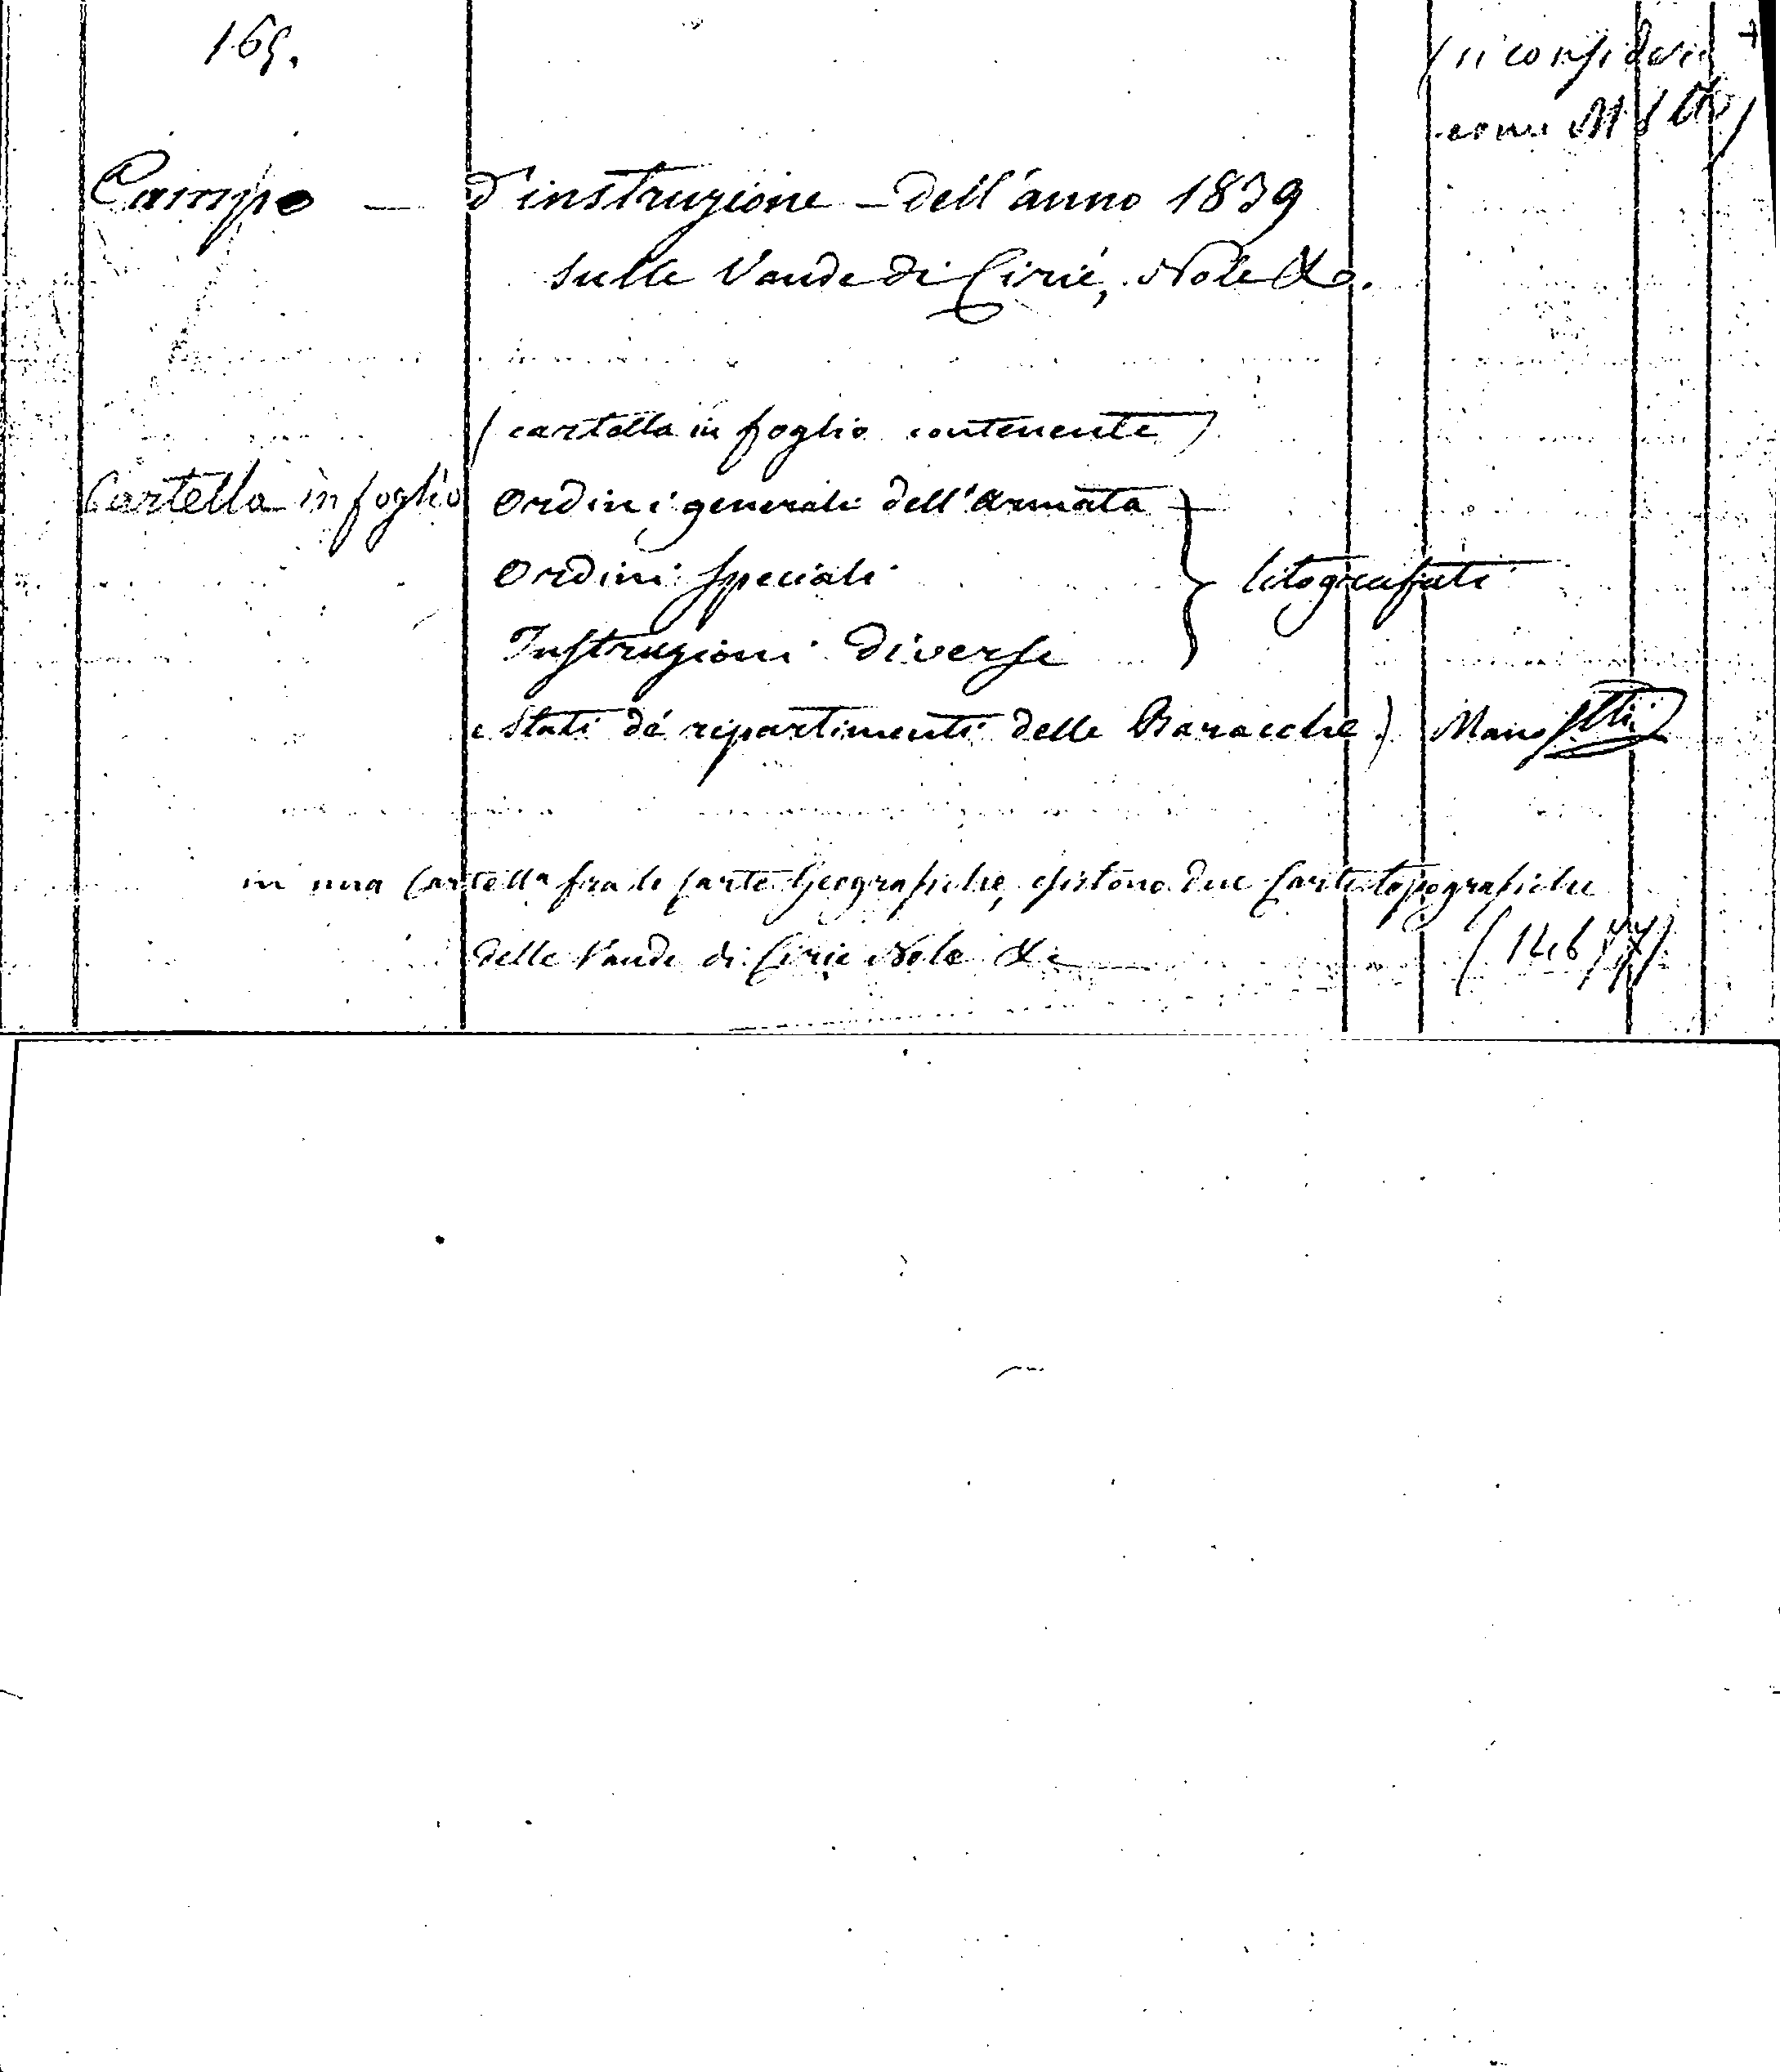 165.
(si consideri +
come M.S tti)
Campo — d'instruzione — dell'anno 1839
sulle Vaude di Cirié, Nole &c.
(cartella in foglio contenente)
Cartella in foglio Ordini generali dell'Armata
Ordini speciali } litografati
Instruzioni diverse
e Stati de' ripartimenti delle Baracche) Manoscritti
in una Cartella fra le Carte Geografiche, esistono due Carte topografiche
delle Vaude di Cirie Nole &c